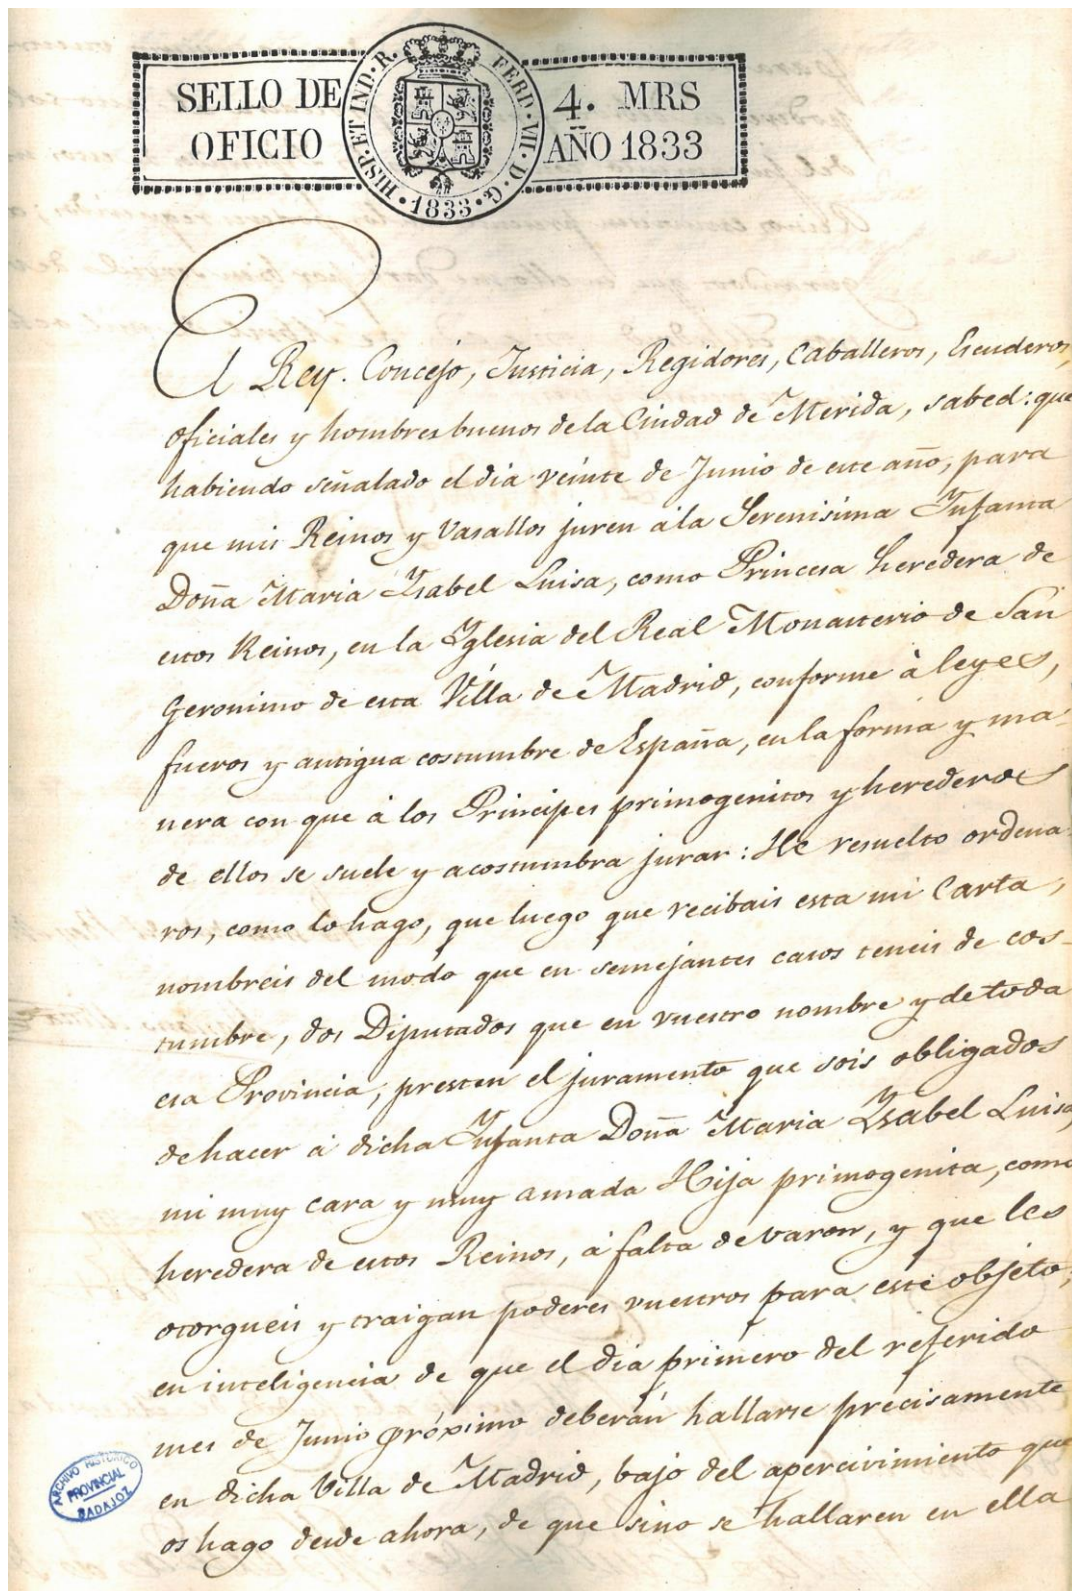 SELLO DE
OFICIO
HISP. ET IND. R. FERD. VII. D. G.
· 1833 ·
4. MRS
AÑO 1833
El Rey. Concejo, Justicia, Regidores, Caballeros, Escuderos,
oficiales y hombres buenos de la Ciudad de Merida, sabed: que
habiendo señalado el dia veinte de Junio de este año, para
que mis Reinos y Vasallos juren á la Serenisima Infanta
Doña Maria Ysabel Luisa, como Princesa heredera de
estos Reinos, en la Yglesia del Real Monasterio de San
Geronimo de esta Villa de Madrid, conforme à leyes,
fueros y antigua costumbre de España, en la forma y ma-
nera con que à los Principes primogenitos y herederos
de ellos se suele y acostumbra jurar: He resuelto ordena-
ros, como lo hago, que luego que recibais esta mi Carta,
nombreis del modo que en semejantes casos teneis de cos-
tumbre, dos Diputados que en vuestro nombre y de toda
esa Provincia, presten el juramento que sois obligados
de hacer à dicha Infanta Doña Maria Ysabel Luisa,
mi muy cara y muy amada Hija primogenita, como
heredera de estos Reinos, à falta de varon, y que les
otorgueis y traigan poderes vuestros para este objeto;
en inteligencia de que el dia primero del referido
mes de Junio próximo deberán hallarse precisamente
en dicha Villa de Madrid, bajo del apercivimiento que
os hago desde ahora, de que sino se hallaren en ella
ARCHIVO HISTÓRICO
PROVINCIAL
BADAJOZ